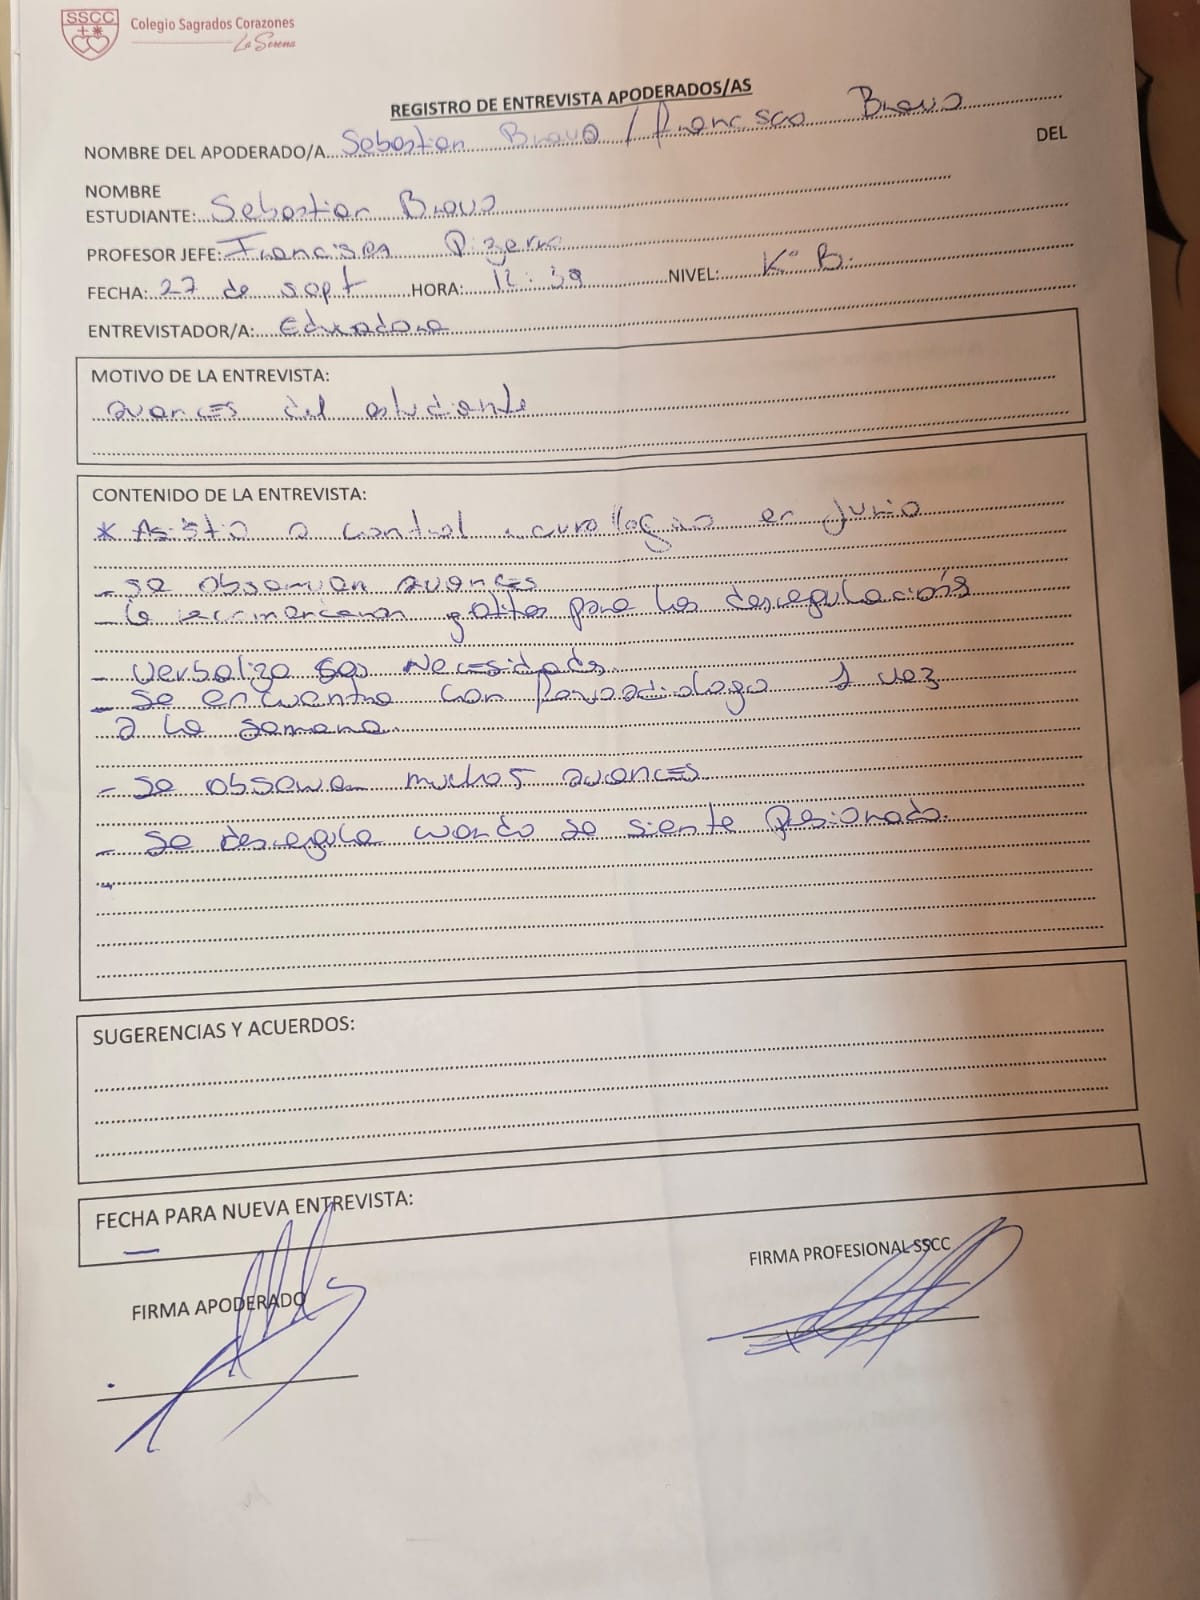 SSCC
Colegio Sagrados Corazones
La Serena
REGISTRO DE ENTREVISTA APODERADOS/AS
NOMBRE DEL APODERADO/A Sebastian Bravo / Francisco Bravo DEL
NOMBRE
ESTUDIANTE: Sebastian Bravo
PROFESOR JEFE: Francisca Pizarro
FECHA: 27 de sept HORA: 12:39 NIVEL: K° B.
ENTREVISTADOR/A: Educadora
MOTIVO DE LA ENTREVISTA:
avances del estudiante
CONTENIDO DE LA ENTREVISTA:
* Asistio a control en Junio
- se observan avances
- le para las
- Verbaliza sus Necesidades.
- Se encuentra con 1 vez
a la semana.
- se observan muchos avances
- Se desregula cuando se siente presionado.
SUGERENCIAS Y ACUERDOS:
FECHA PARA NUEVA ENTREVISTA:
—
FIRMA APODERADO
FIRMA PROFESIONAL SSCC